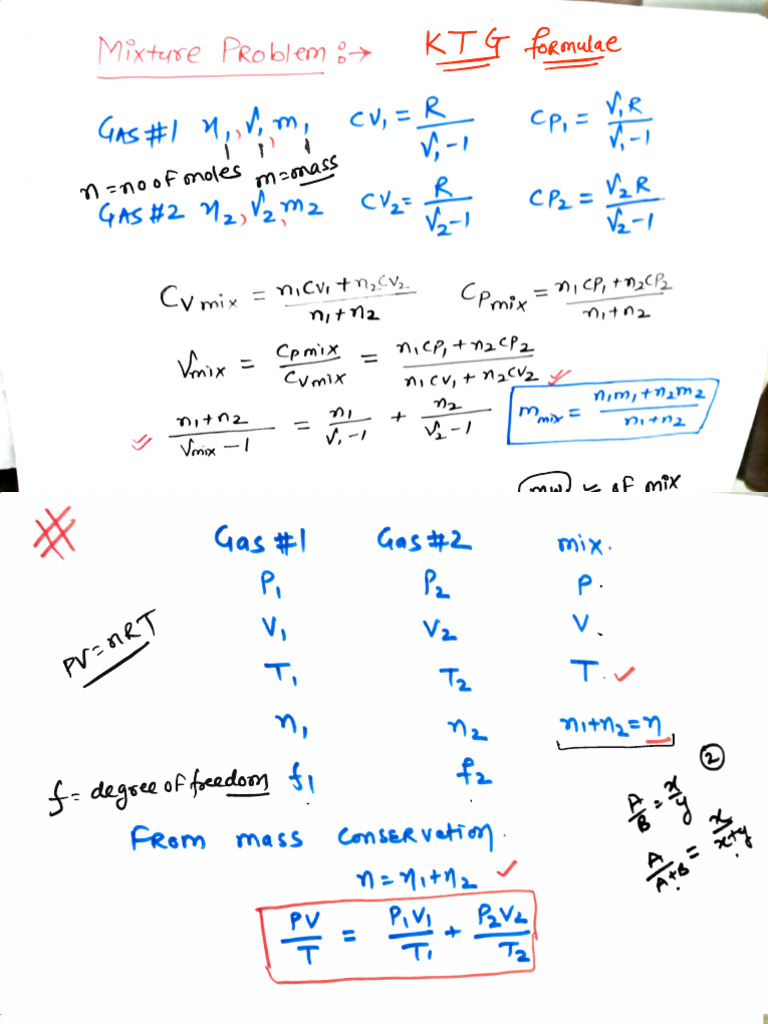 Mixture Problem :→ KTG formulae
GAS #1 n₁, γ₁, m₁ CV₁ = R/(γ₁-1) CP₁ = γ₁R/(γ₁-1)
n = no of moles m = mass
GAS #2 n₂, γ₂, m₂ CV₂ = R/(γ₂-1) CP₂ = γ₂R/(γ₂-1)
CVmix = (n₁CV₁ + n₂CV₂)/(n₁+n₂) CPmix = (n₁CP₁ + n₂CP₂)/(n₁+n₂)
γmix = CPmix/CVmix = (n₁CP₁ + n₂CP₂)/(n₁CV₁ + n₂CV₂)
(n₁+n₂)/(γmix-1) = n₁/(γ₁-1) + n₂/(γ₂-1) mmix = (n₁m₁ + n₂m₂)/(n₁+n₂)
of mix
Gas #1 Gas #2 mix.
P₁ P₂ P.
PV = nRT
V₁ V₂ V.
T₁ T₂ T.
n₁ n₂ n₁+n₂ = n
f = degree of freedom f₁ f₂
②
A/B = x/y
A/(A+B) = x/(x+y)
From mass conservation.
n = n₁+n₂
PV/T = P₁V₁/T₁ + P₂V₂/T₂